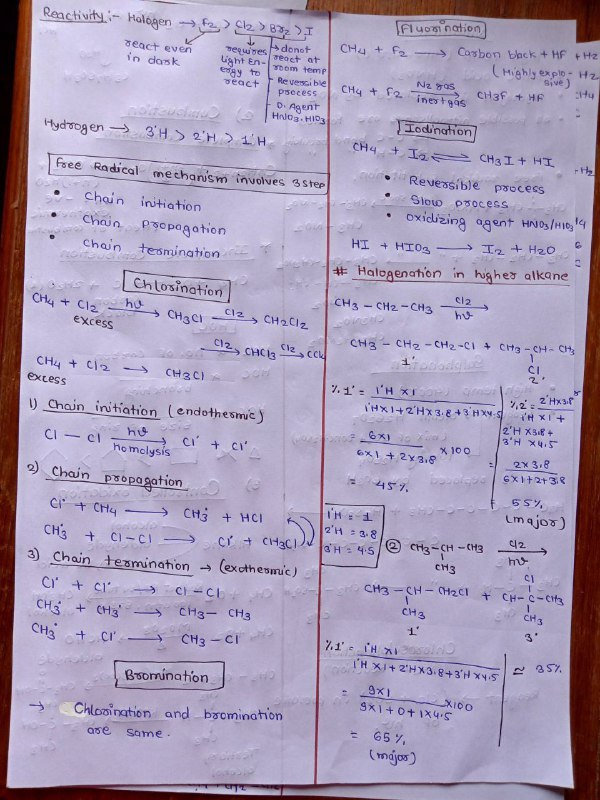 Reactivity :- Halogen → F2 > Cl2 > Br2 > I
react even in dark
requires light Energy to react
→ donot react at room temp
- Reversible process
- O. Agent HNO3, HIO3
Hydrogen → 3°H > 2°H > 1°H
Free Radical mechanism involves 3 step
• Chain initiation
• Chain propagation
• Chain termination
Chlorination
CH4 + Cl2 hν→ CH3Cl Cl2→ CH2Cl2
excess
Cl2→ CHCl3 Cl2→ CCl4
CH4 + Cl2 → CH3Cl
excess
1) Chain initiation (endothermic)
Cl — Cl hν→ Cl• + Cl•
homolysis
2) Chain propagation
Cl• + CH4 → CH3• + HCl
CH3• + Cl-Cl → Cl• + CH3Cl
3) Chain termination → (exothermic)
Cl• + Cl• → Cl-Cl
CH3• + CH3• → CH3- CH3
CH3• + Cl• → CH3-Cl
Bromination
→ Chlorination and bromination
are same.
Fluorination
CH4 + F2 → Carbon black + HF
(Highly explosive)
CH4 + F2 N2 gas→ CH3F + HF
inert gas
Iodination
CH4 + I2 ⇌ CH3I + HI
• Reversible process
• Slow process
• oxidizing agent HNO3/HIO3
HI + HIO3 → I2 + H2O
# Halogenation in higher alkane
CH3 - CH2 - CH3 Cl2→
hν
CH3 - CH2 - CH2-Cl + CH3-CH-CH3
1° Cl
2°
% 1° = 1°H x1
1°H x1 + 2°H x 3.8 + 3°H x 4.5
= 6x1 x100
6x1 + 2x3.8
= 45%
% 2° = 2°H x3.8
1°H x1 +
2°H x 3.8 +
3°H x 4.5
= 2x3.8
6x1+2+3.8
= 55%
(major)
1°H = 1
2°H = 3.8
3°H = 4.5
② CH3-CH-CH3 Cl2→
CH3 hν
Cl
CH3-CH-CH2Cl + CH-C-CH3
CH3 CH3
1° 3°
% 1° = 1°H x1
1°H x1 + 2°H x3.8 + 3°H x4.5
= 9x1 x100
9x1+0+1x4.5
= 65%
(major)
≃ 35%